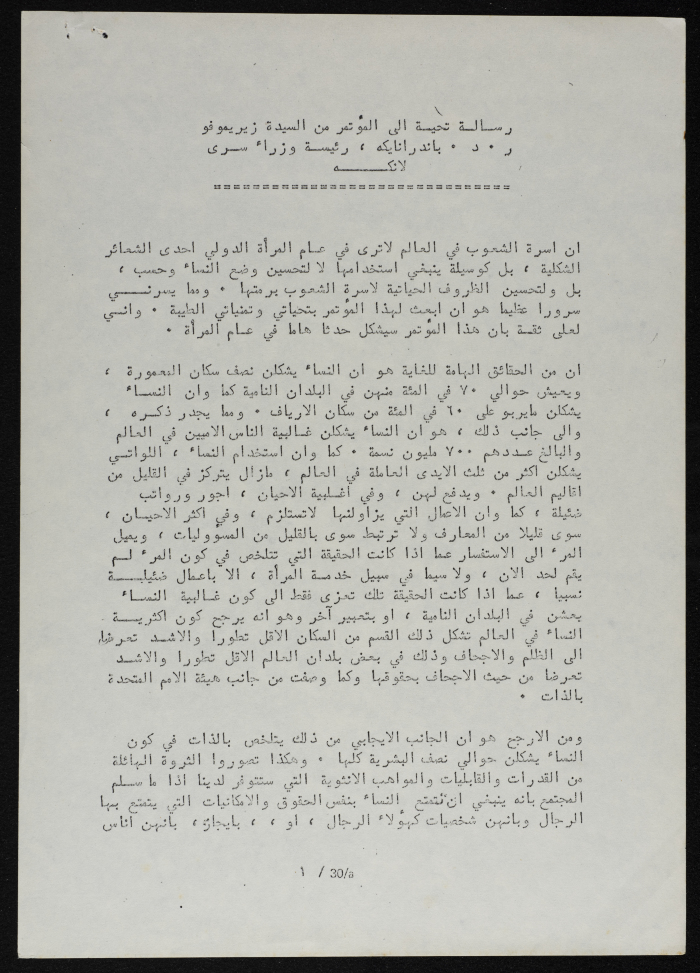 رسالة تحية الى المؤتمر من السيدة زيريموفو
ر . د . باندرانايكه ، رئيسة وزراء سرى
لانكه
================================
ان اسرة الشعوب في العالم لاترى في عام المرأة الدولي احدى الشعائر
الشكلية ، بل كوسيلة ينبغي استخدامها لا لتحسين وضع النساء وحسب ،
بل ولتحسين الظروف الحياتية لاسرة الشعوب برمتها . ومما يسرني
سرورا عظيما هو ان ابعث لهذا المؤتمر بتحياتي وتمنياتي الطيبة . وانني
لعلى ثقة بان هذا المؤتمر سيشكل حدثا هاما في عام المرأة .
ان من الحقائق الهامة للغاية هو ان النساء يشكلن نصف سكان المعمورة ،
ويعيش حوالي ٧٠ في المئة منهن في البلدان النامية كما وان النساء
يشكلن مايربو على ٦٠ في المئة من سكان الارياف . ومما يجدر ذكره ،
والى جانب ذلك ، هو ان النساء يشكلن غالبية الناس الاميين في العالم
والبالغ عددهم ٧٠٠ مليون نسمة . كما وان استخدام النساء ، اللواتي
يشكلن اكثر من ثلث الايدى العاملة في العالم ، مازال يتركز في القليل من
اقاليم العالم . ويدفع لهن ، وفي اغلبية الاحيان ، اجور ورواتب
ضئيلة ، كما وان الاعمال التي يزاولنها لاتستلزم ، وفي اكثر الاحيان ،
سوى قليلا من المعارف ولا ترتبط سوى بالقليل من المسؤوليات ، ويميل
المرء الى الاستفسار عما اذا كانت الحقيقة التي تتلخص في كون المرء لم
يقم لحد الان ، ولا سيما في سبيل خدمة المرأة ، الا باعمال ضئيلة
نسبيا ، عما اذا كانت الحقيقة تلك تعزى فقط الى كون غالبية النساء
يعشن في البلدان النامية ، او بتعبير آخر وهو انه يرجح كون اكثرية
النساء في العالم تشكل ذلك القسم من السكان الاقل تطورا والاشد تعرضا
الى الظلم والاجحاف وذلك في بعض بلدان العالم الاقل تطورا والاشد
تعرضا من حيث الاجحاف بحقوقها وكما وصفت من جانب هيئة الامم المتحدة
بالذات .
ومن الارجح هو ان الجانب الايجابي من ذلك يتلخص بالذات في كون
النساء يشكلن حوالي نصف البشرية كلها . وهكذا تصوروا الثروة الهائلة
من القدرات والقابليات والمواهب الانثوية التي ستتوفر لدينا اذا ما سلم
المجتمع بانه ينبغي ان تتمتع النساء بنفس الحقوق والامكانيات التي يتمتع بها
الرجال وبانهن شخصيات كهؤلاء الرجال ، او ، ، بايجاز ، بانهن اناس
1 / 30/a